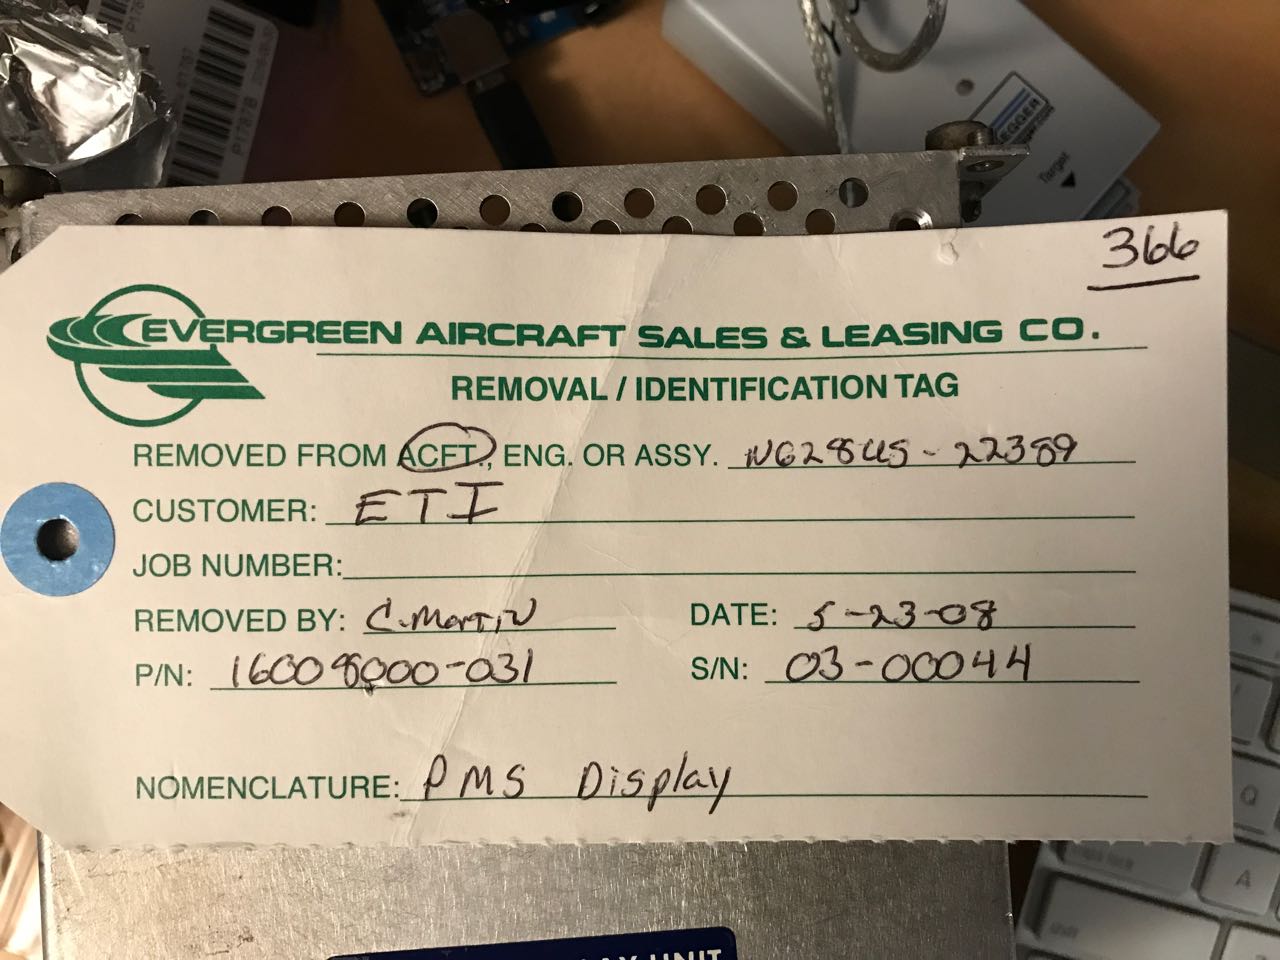 366
EVERGREEN AIRCRAFT SALES & LEASING CO.
REMOVAL / IDENTIFICATION TAG
REMOVED FROM ACFT., ENG. OR ASSY. N628US - 22389
CUSTOMER: ETI
JOB NUMBER:
REMOVED BY: C. Martin DATE: 5-23-08
P/N: 16008000-031 S/N: 03-00044
NOMENCLATURE: PMS Display
UNIT
Target
P1787B
Q
A